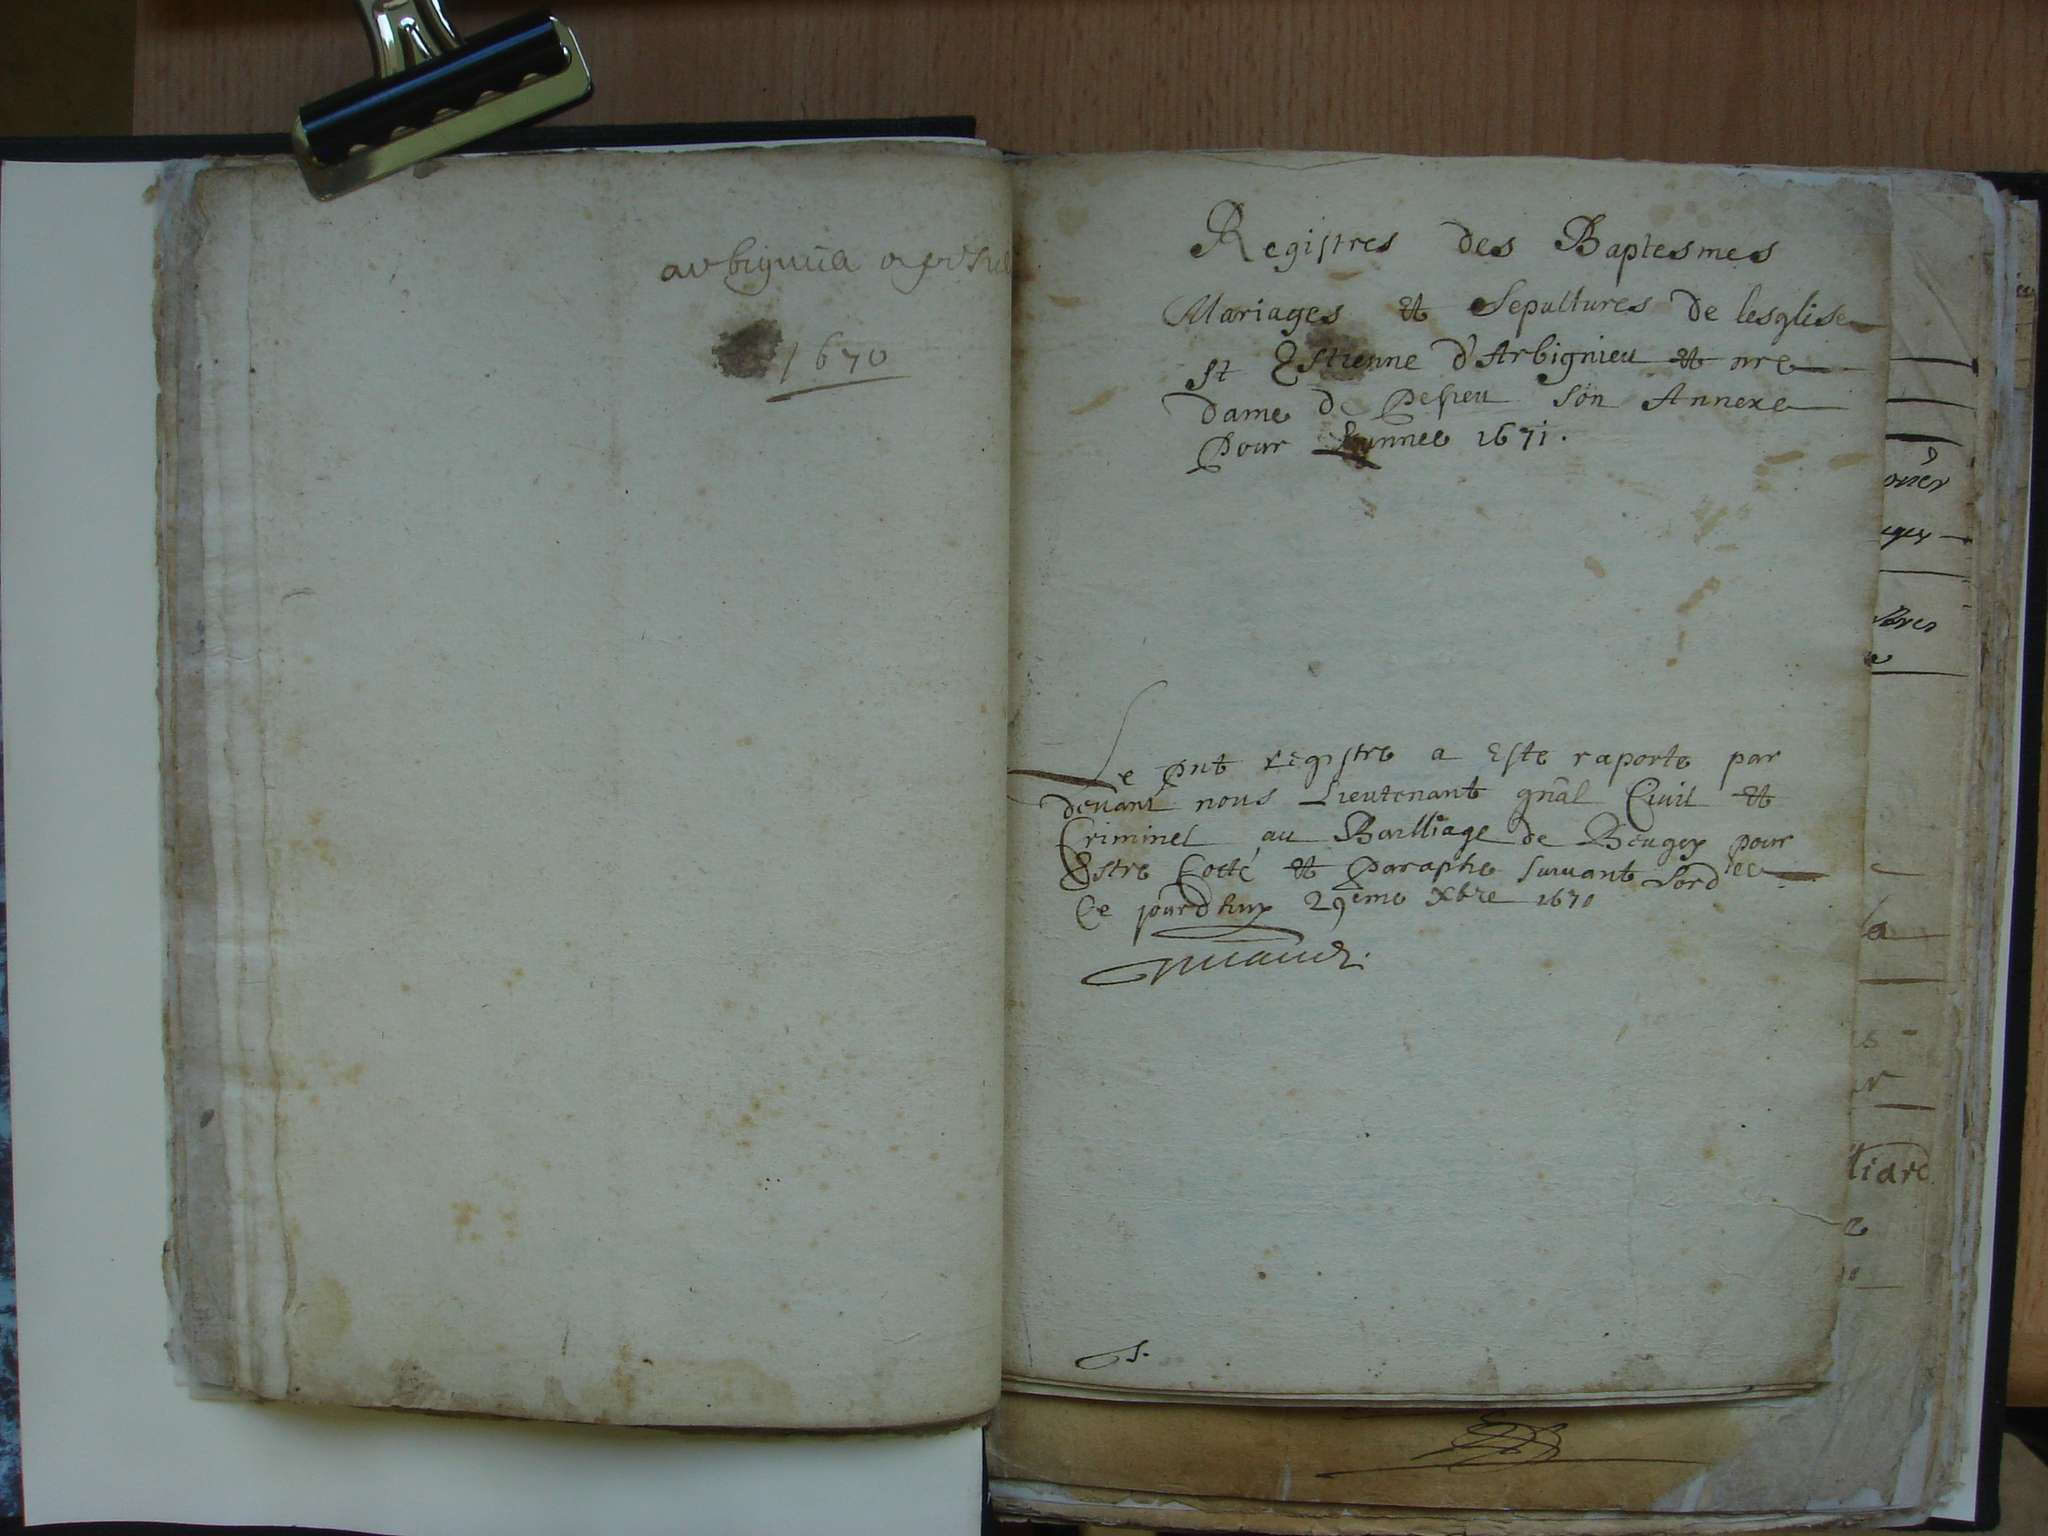 1670
Registres des Baptesmes
Mariages et Sepultures de lesglise
st Estienne d'Arbignieu et nre
dame de Peyzieu son Annexe
pour Lannee 1671.
Le pnt registre a este raporte par
devant nous Lieutenant gnal Civil et
Criminel au Bailliage de Beugey pour
Estre Cotté et paraphe suivant Lord
Ce jourdhuy 29eme Xbre 1670
ouer
ugey
la
lliard